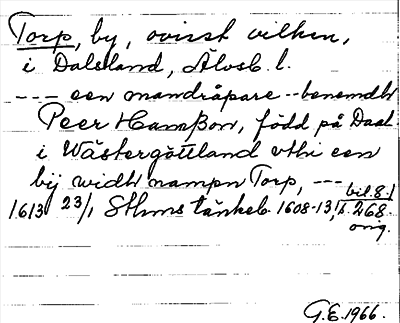 Torp, by, ovisst vilken,
i Dalsland, Älvsb. l.
--- een mandråpare -- benemdh
Peer Hanßon, född på Daal
i Wästergöttland vthi een
bij widh nampn Torp, ---
1613 23/1 Sthms tänkeb. 1608-13, (bil. 8.)
s. 268.
orig.
G.E. 1966.